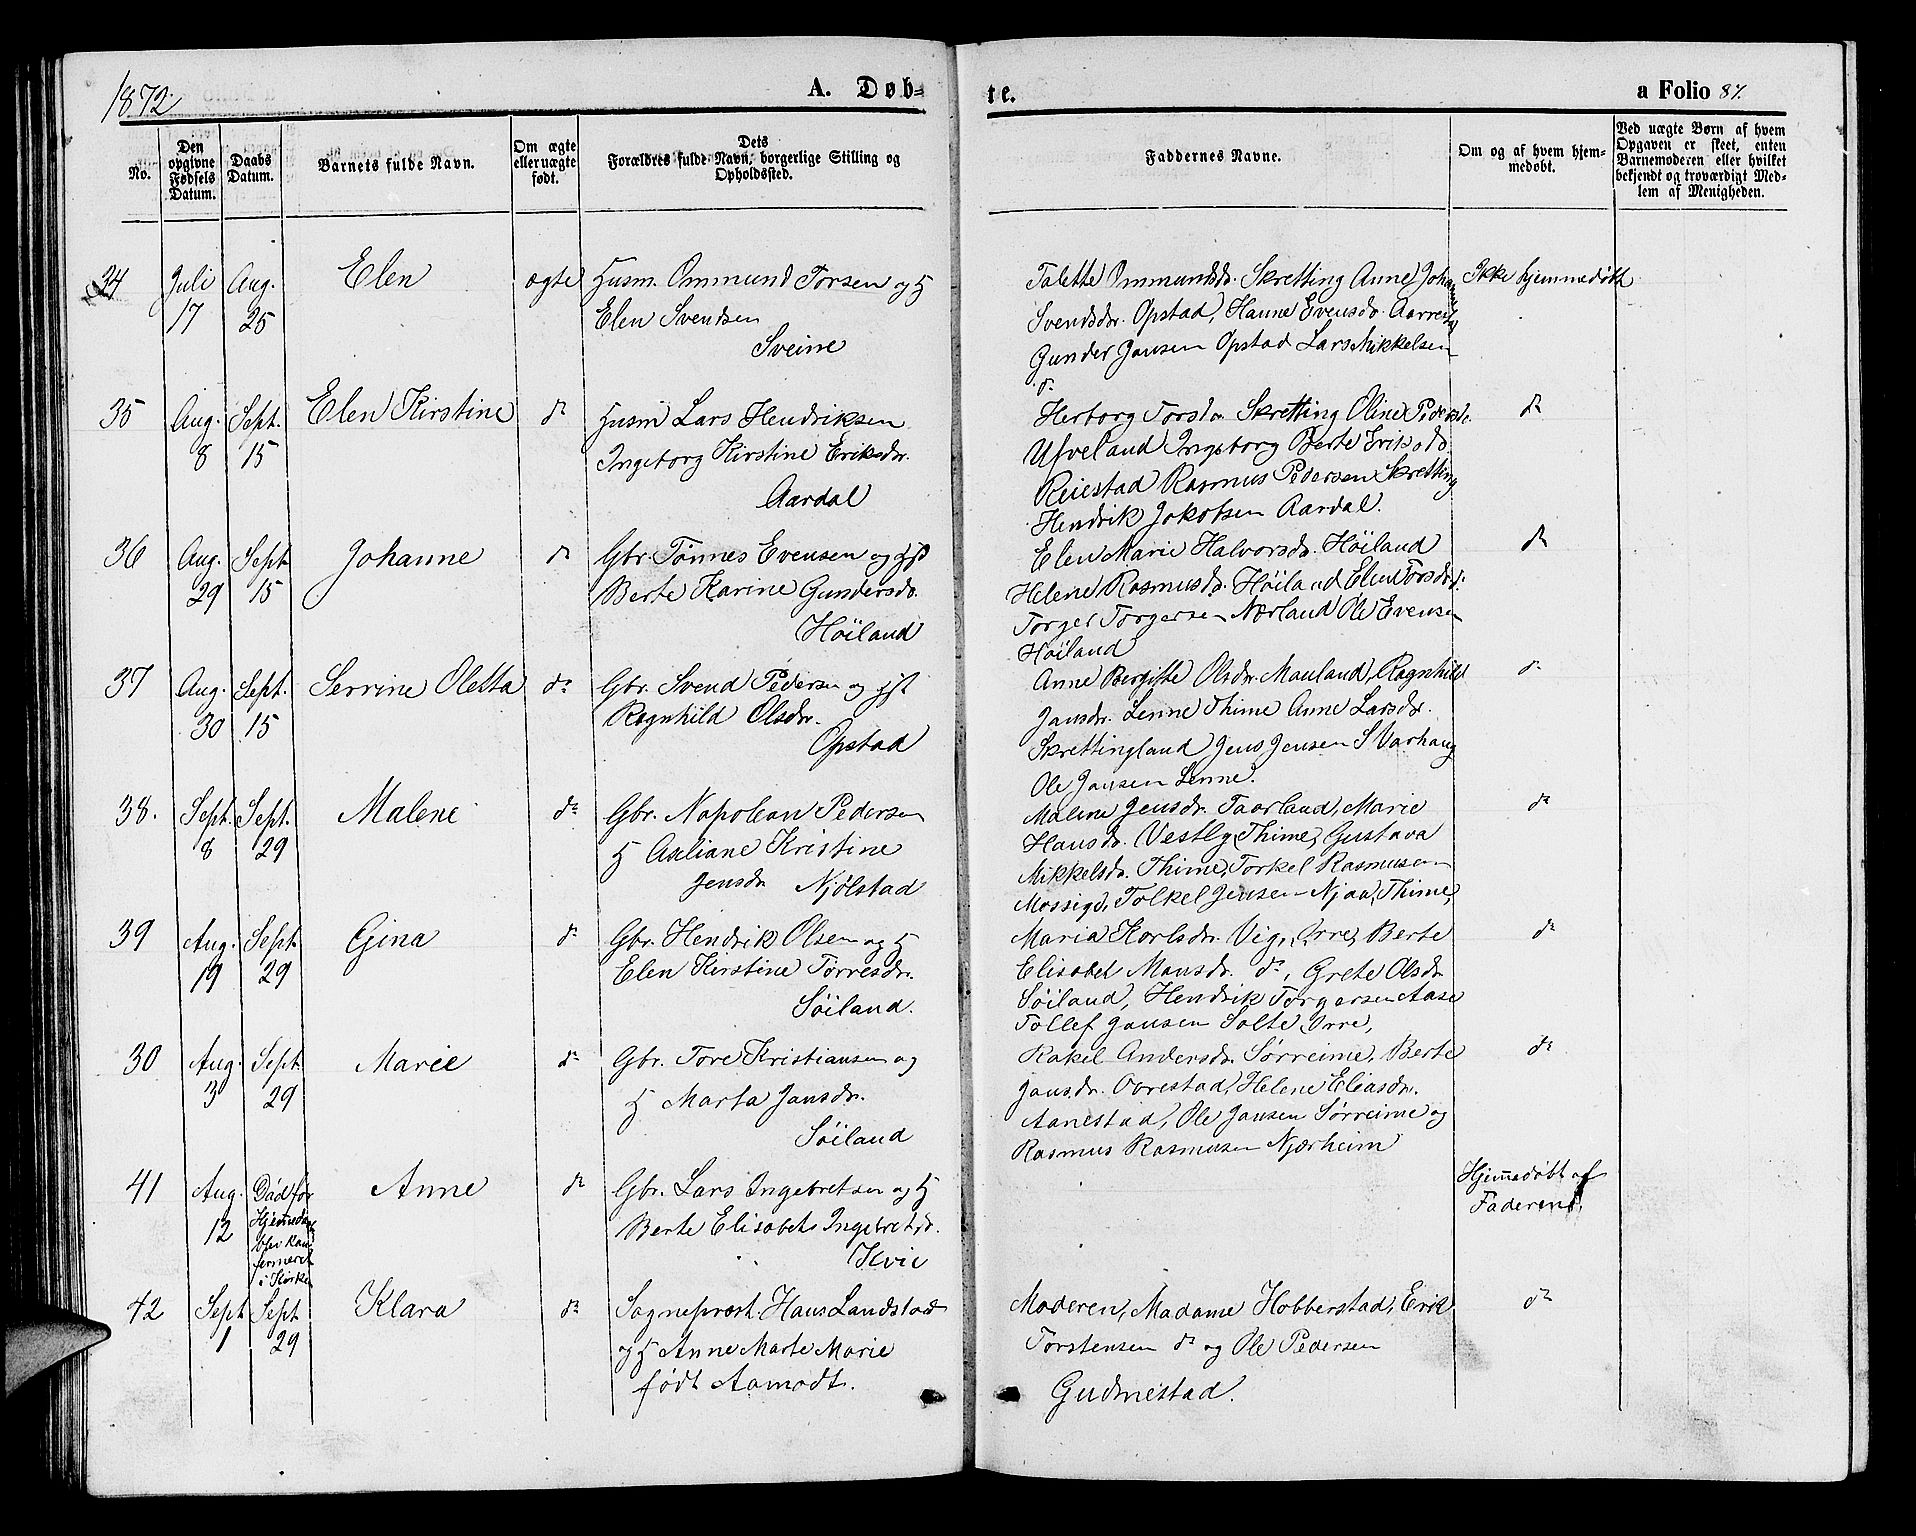 1872.
A. Døb-
te.
a Folio 87.
No.
Den opgivne Fødsels Datum.
Daabs Datum.
Barnets fulde Navn.
Om ægte eller uægte født.
Dets Forældres fulde Navn, borgerlige Stilling og Opholdssted.
Faddernes Navne.
Om og af hvem hjemmedøbt.
Ved uægte Børn af hvem Opgaven er skeet, enten Barnemoderen eller hvilket bekjendt og troværdigt Medlem af Menigheden.
34 Juli 17 Aug. 25 Elen ægte Husm. Ommund Torsen og H
Elen Svendsen
Sveine
Talette Ommundsdr. Skretting Anne Johanne
Svendsdr. Opstad, Hanne Evensdr. Aarrestad
Gunder Jansen Opstad Lars Mikkelsen
dº
Ikke hjemmedøbt
35 Aug. 8 Sept. 15 Elen Kirstine dº Husm Lars Hendriksen
Ingeborg Kirstine Eriksdr.
Aardal
Herborg Torsdr Skretting Oline Pedersdr.
Ufveland Ingeborg Berte Eriksdr.
Reiestad Rasmus Pedersen Skretting
Hendrik Jakobsen Aardal.
dº
36 Aug. 29 Sept. 15 Johanne dº Gbr. Tønnes Evensen og Hst
Berte Karine Gundersdr.
Høiland
Elen Marie Halvorsdr. Høiland
Helene Rasmusdr. Høiland Elen Torsdr. dº
Torger Torgersen Nærland Ole Evensen
Høiland
dº
37 Aug. 30 Sept. 15 Serrine Oletta dº Gbr. Svend Pedersen og Hst
Ragnhild Olsdr.
Opstad
Anne Bergitte Olsdr. Mauland, Ragnhild
Jansdr. Lenne Thime Anne Larsdr.
Skrettingland Jens Jensen S Varhaug
Ole Jansen Lenne.
dº
38. Sept. 8 Sept. 29 Malene dº Gbr. Napolean Pedersen
H Axliane Kristine
Jensdr Njølstad
Malene Jensdr. Taarland, Marie
Hansdr. Vestly, Thime, Gustava
Mikkelsdr. Thime, Torkel Rasmusen
Mossige, Tolkel Jensen Njaa, Thime,
dº
39 Aug. 19 Sept. 29 Gina dº Gbr. Hendrik Olsen og H
Elen Kirstine Tørresdr.
Søiland.
Maria Karlsdr. Vig, Orre, Berte
Elisabet Mansdr. dº, Grete Olsdr
Søiland, Hendrik Torgersen Aase
Tollef Jansen Salte, Orre,
dº
30 Aug. 3 Sept. 29 Marie dº Gbr. Tore Kristiansen og
H Marta Jansdr.
Søiland
Rakel Andersdr. Sørreime, Berte
Jansdr. Ovrestad, Helene Eliasdr.
Aanestad, Ole Jansen Sørreime og
Rasmus Rasmusen Njærheim
dº
41 Aug. 12 Død før Anne dº Gbr. Lars Ingebretsen og H
Berte Elisabets Ingebretsdr.
Kvie
Hjemmedøbt af
Faderens.
42 Sept 1 Sept 29 Klara dº Sogneprest. Hans Landstad
og H Anne Marte Marie
født Aamodt.
Moderen, Madame Hobberstad, Erik
Torstensen dº og Ole Pedersen
Gudmestad.
dº